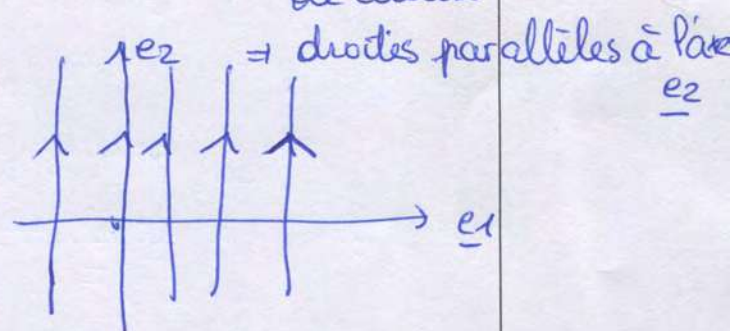 e2 ⇒ droites parallèles à l'axe
e2
e1